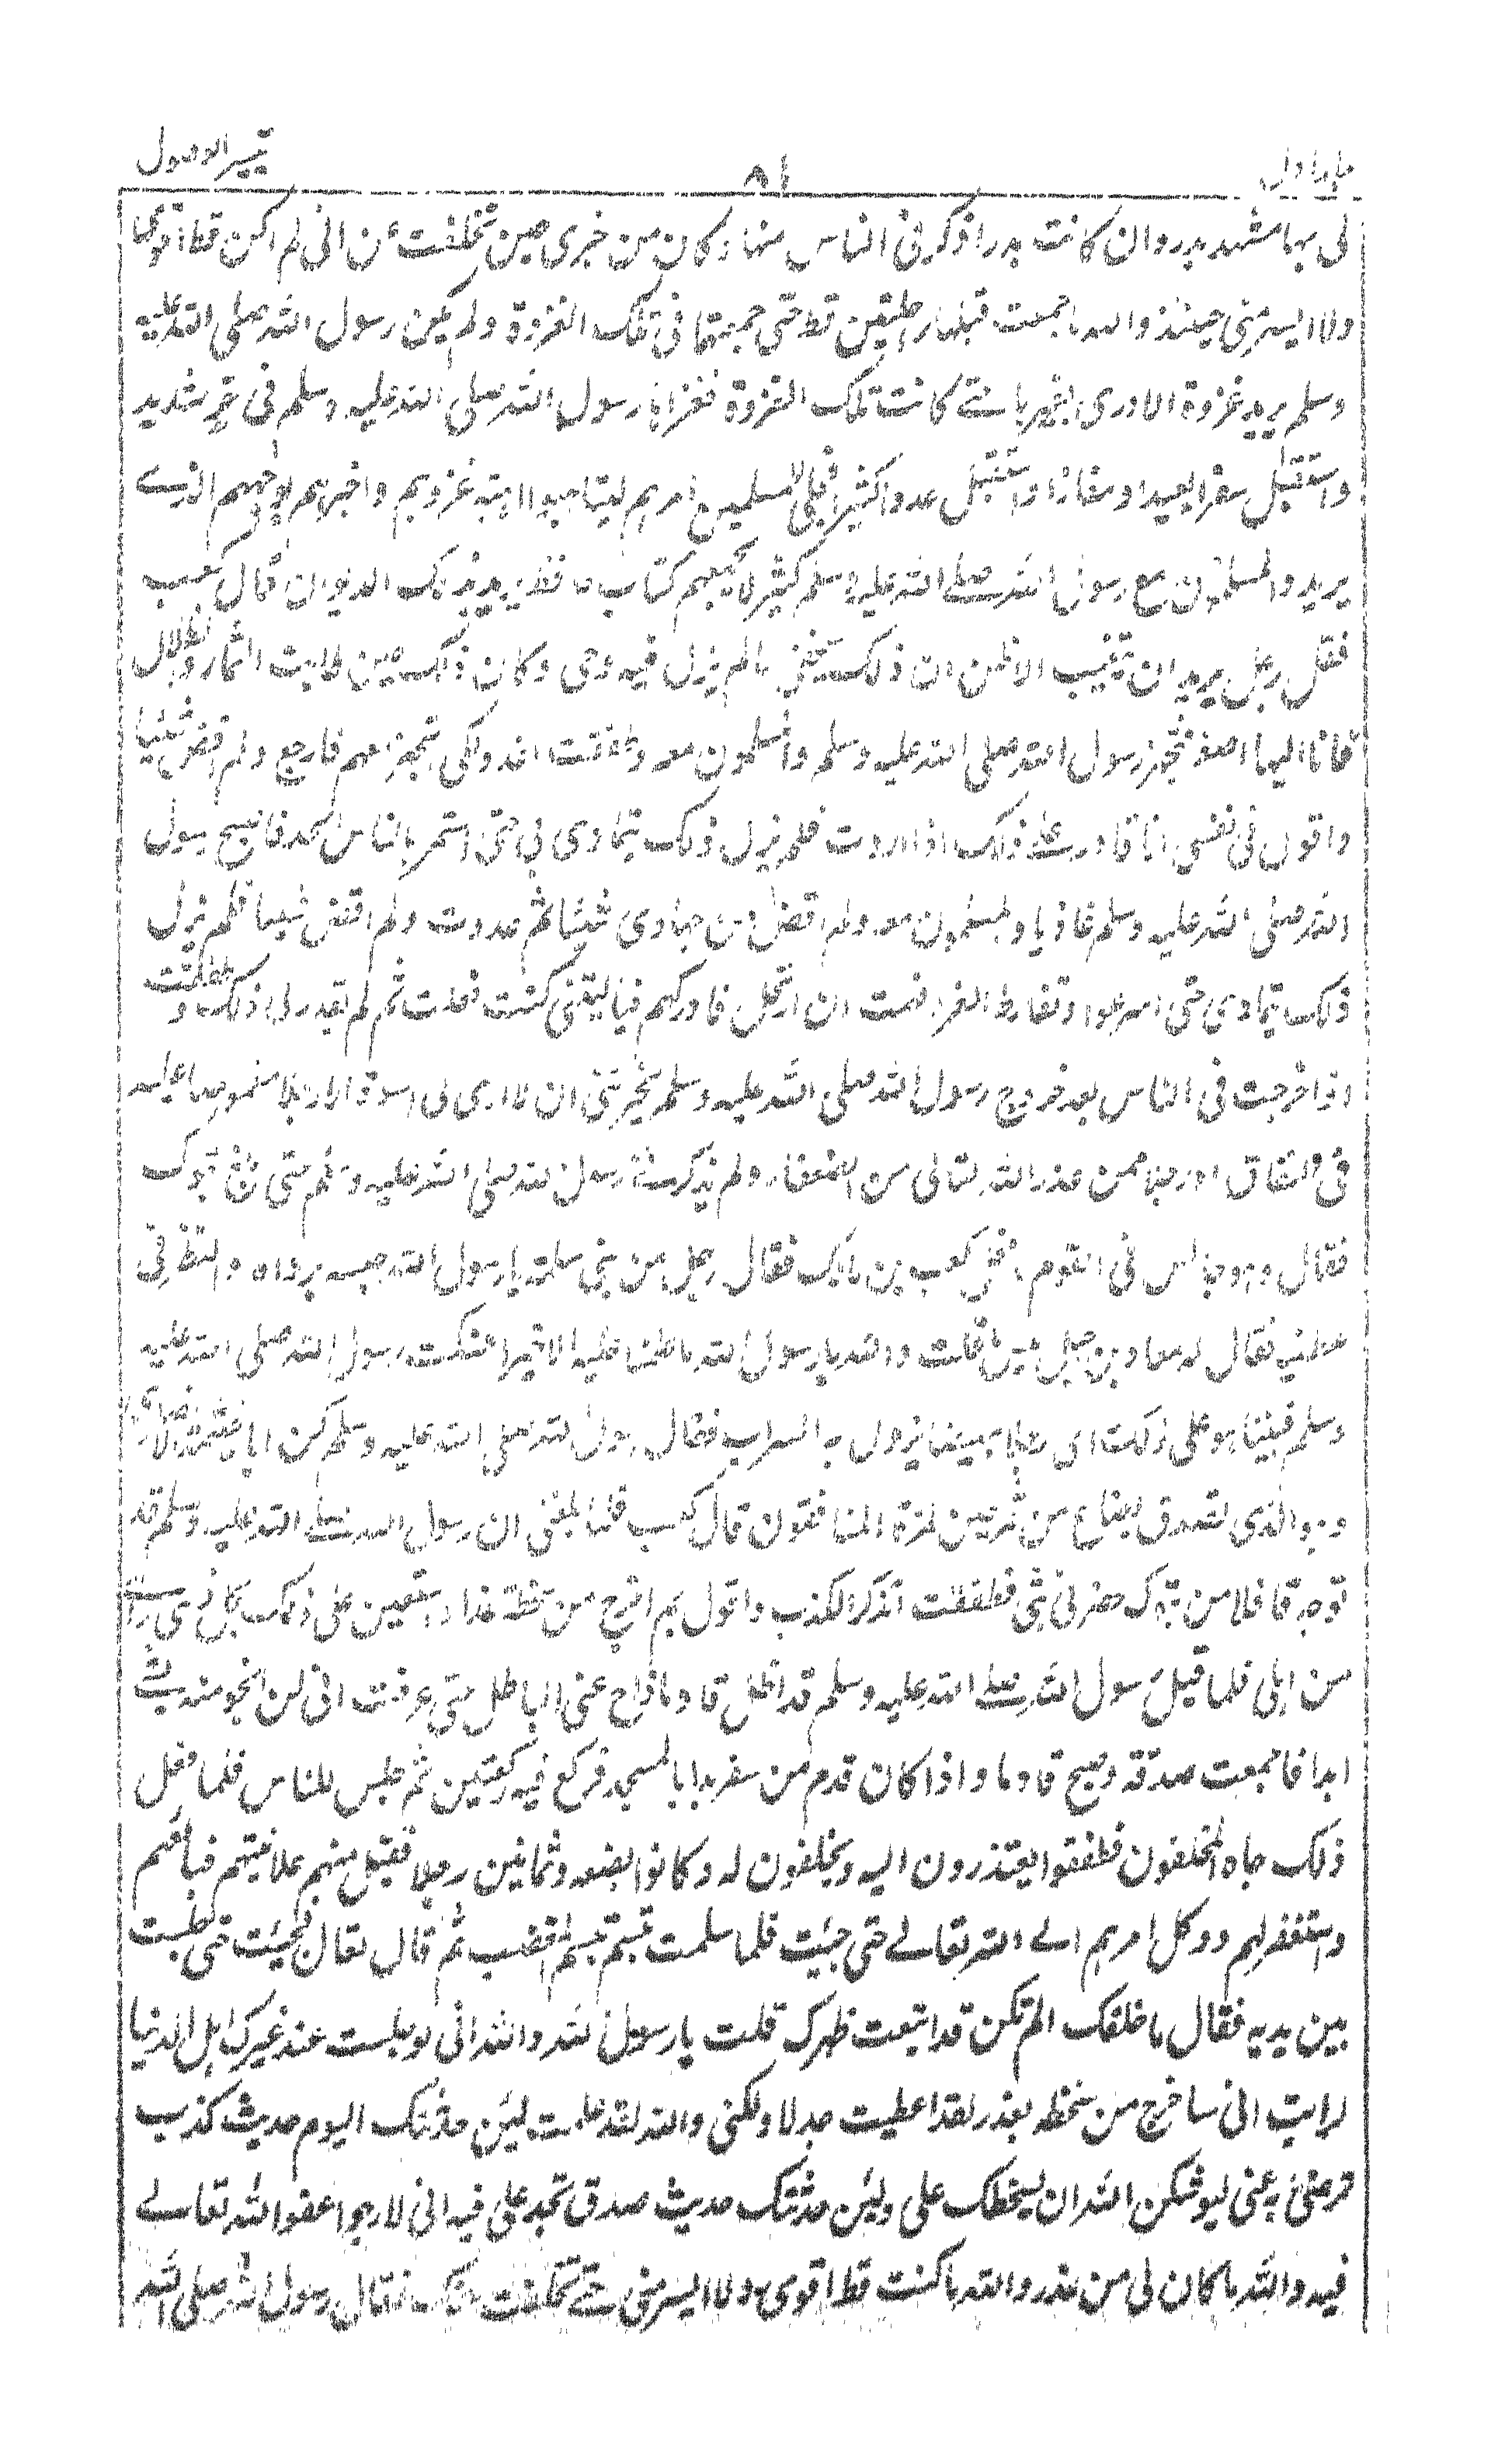 جلد اول ٨١ تيسير الاصول
لى بها مشهد بدر وان كانت بدر اذكر فى الناس منها وكان من خبرى حين تخلفت عن انى لم اكن قط اقوى
ولا ايسر منى حينئذ والله ما جمعت قبلها راحلتين قط حتى جمعتهما فى تلك الغزوة ولم يكن رسول الله صلى الله عليه
وسلم يريد غزوة الا ورى بغيرها حتے كانت تلك الغزوة فغزاها رسول الله صلى الله عليه وسلم فى حر شديد
واستقبل سفرا بعيدا ومفازا واستقبل عدوا كثيرا فجلى للمسلمين امرهم ليتاهبوا اهبة غزوهم واخبرهم بوجههم الذى
يريد والمسلمون مع رسول الله صلے الله عليه وسلم كثير لا يجمعهم كتاب حافظ يريد بذلك الديوان قال كعب
فقل رجل يريد ان يتغيب الا ظن ان ذلك سيخفى ما لم ينزل فيه وحى وكان ذلك حين طابت الثمار والظلال
فانا اليها اصعر فتجهز رسول الله صلى الله عليه وسلم والمسلمون معه وطفقت اغدو لكى اتجهز معهم فارجع ولم اقض شيئا
واقول فى نفسى انا قادر علے ذلك اذا اردت فلم يزل ذلك يتمادى بى حتى استمر بالناس الجد فاصبح رسول
الله صلى الله عليه وسلم غاديا والمسلمون معه ولم اقض من جهازى شيئا ثم غدوت ولم اقض شيئا فلم يزل
ذلك يتمادى حتى اسرعوا وتفارط الغزو فهمت ان ارتحل فادركهم فيا ليتنى كنت فعلت ثم لم يقدر لى ذلك وطفقت
اذا خرجت فى الناس بعد خروج رسول الله صلى الله عليه وسلم يحزننى ان لا ارى لى اسوة الا رجلا مغموصا عليه
فى النفاق او رجلا ممن عذر الله تعالى من الضعفاء ولم يذكرنى رسول الله صلى الله عليه وسلم حتى بلغ تبوك
فقال وهو جالس فى القوم ما فعل كعب بن مالك فقال رجل من بنى سلمة يا رسول الله حبسه برداه والنظر فى
عطفيه فقال له معاذ بن جبل بئس ما قلت والله يا رسول الله ما علمنا عليه الا خيرا فسكت رسول الله صلى الله عليه
وسلم فبينا هو على ذلك راى رجلا مبيضا يزول به السراب فقال رسول الله صلى الله عليه وسلم كن ابا خيثمة الانصارى
وهو الذى تصدق بصاع من تمر حين لمزه المنافقون قال كعب فلما بلغنى ان رسول الله صلے الله عليه وسلم قد
توجه قافلا من تبوك حضرنى بثى فطفقت اتذكر الكذب واقول بم اخرج من سخطه غدا واستعين على ذلك بكل ذى راى
من اهلى فلما قيل رسول الله صلے الله عليه وسلم قد اظل قادما زاح عنى الباطل حتى عرفت انى لن انجو منه بشے
ابدا فاجمعت صدقه وصبح قادما واذا كان قدم من سفر بدا بالمسجد فركع فيه ركعتين ثم جلس للناس فلما فعل
ذلك جاه المخلفون فطفقوا يعتذرون اليه ويحلفون له وكانوا بضعه وثمانين رجلا فقبل منهم علانيتهم فبايعهم
واستغفر لهم ووكل امرهم الے الله تعالے حتى جئيت فلما سلمت تبسم تبسم المغضب ثم قال تعال فجئت حتى جلست
بين يديه فقال ما خلفك الم تكن قد ابتعت ظهرك قلت يا رسول الله والله انى لو جلست عند غيرك من اهل الدنيا
لرايت انى ساخرج من سخطه بعذر لقد اعطيت جدلا ولكنى والله لقد علمت لئن حدثتك اليوم حديث كذب
ترضى به عنى ليوشكن الله ان يسخطك على ولئن حدثتك حديث صدق تجد على فيه انى لارجوا عفو الله تعالے
فيه والله ما كان لى من عذر والله ما كنت قط اقوى ولا ايسر منى حتے تخلفت عنك فقال رسول الله صلى الله